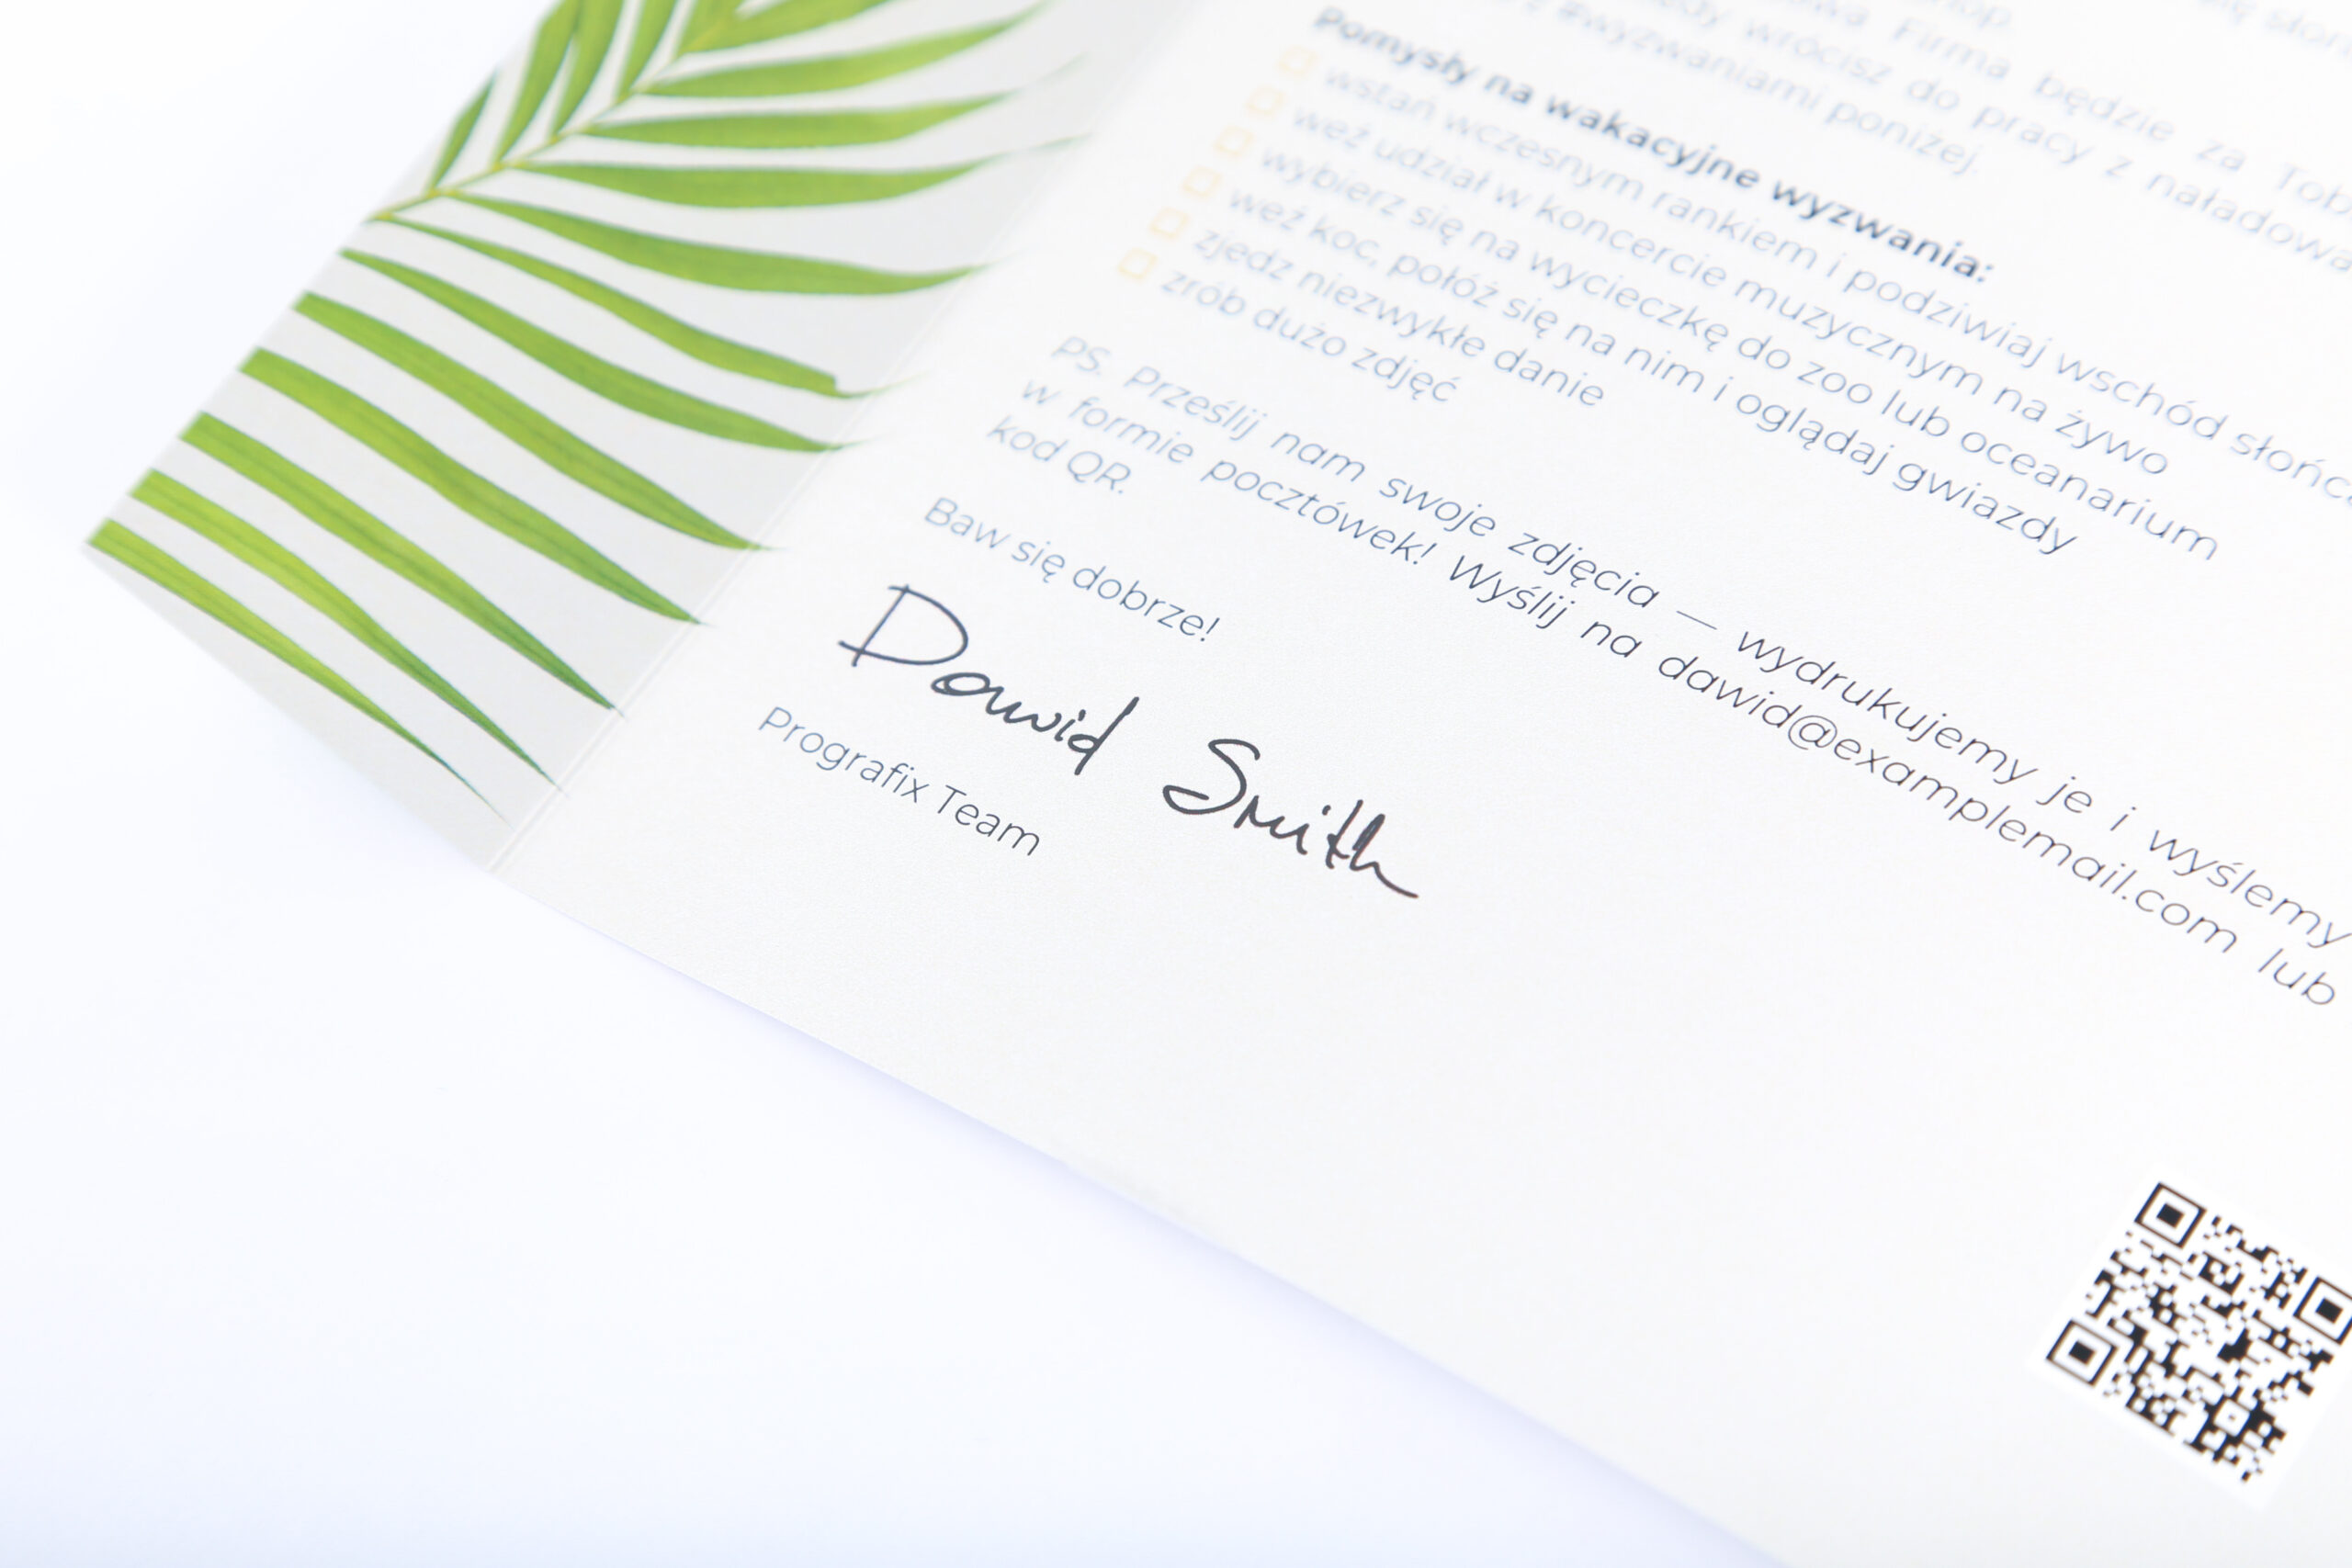 się
Firma będzie za
wrócisz do pracy z
#wyzwaniami poniżej.
Pomysły na wakacyjne wyzwania:
wstań wczesnym rankiem i podziwiaj wschód
weź udział w koncercie muzycznym na żywo
wybierz się na wycieczkę do zoo lub oceanarium
weź koc, połóż się na nim i oglądaj gwiazdy
zjedz niezwykłe danie
zrób dużo zdjęć
PS. Prześlij nam swoje zdjęcia — wydrukujemy je i wyślemy
w formie pocztówek! Wyślij na dawid@examplemail.com lub
kod QR.
Baw się dobrze!
Dawid Smith
Prografix Team